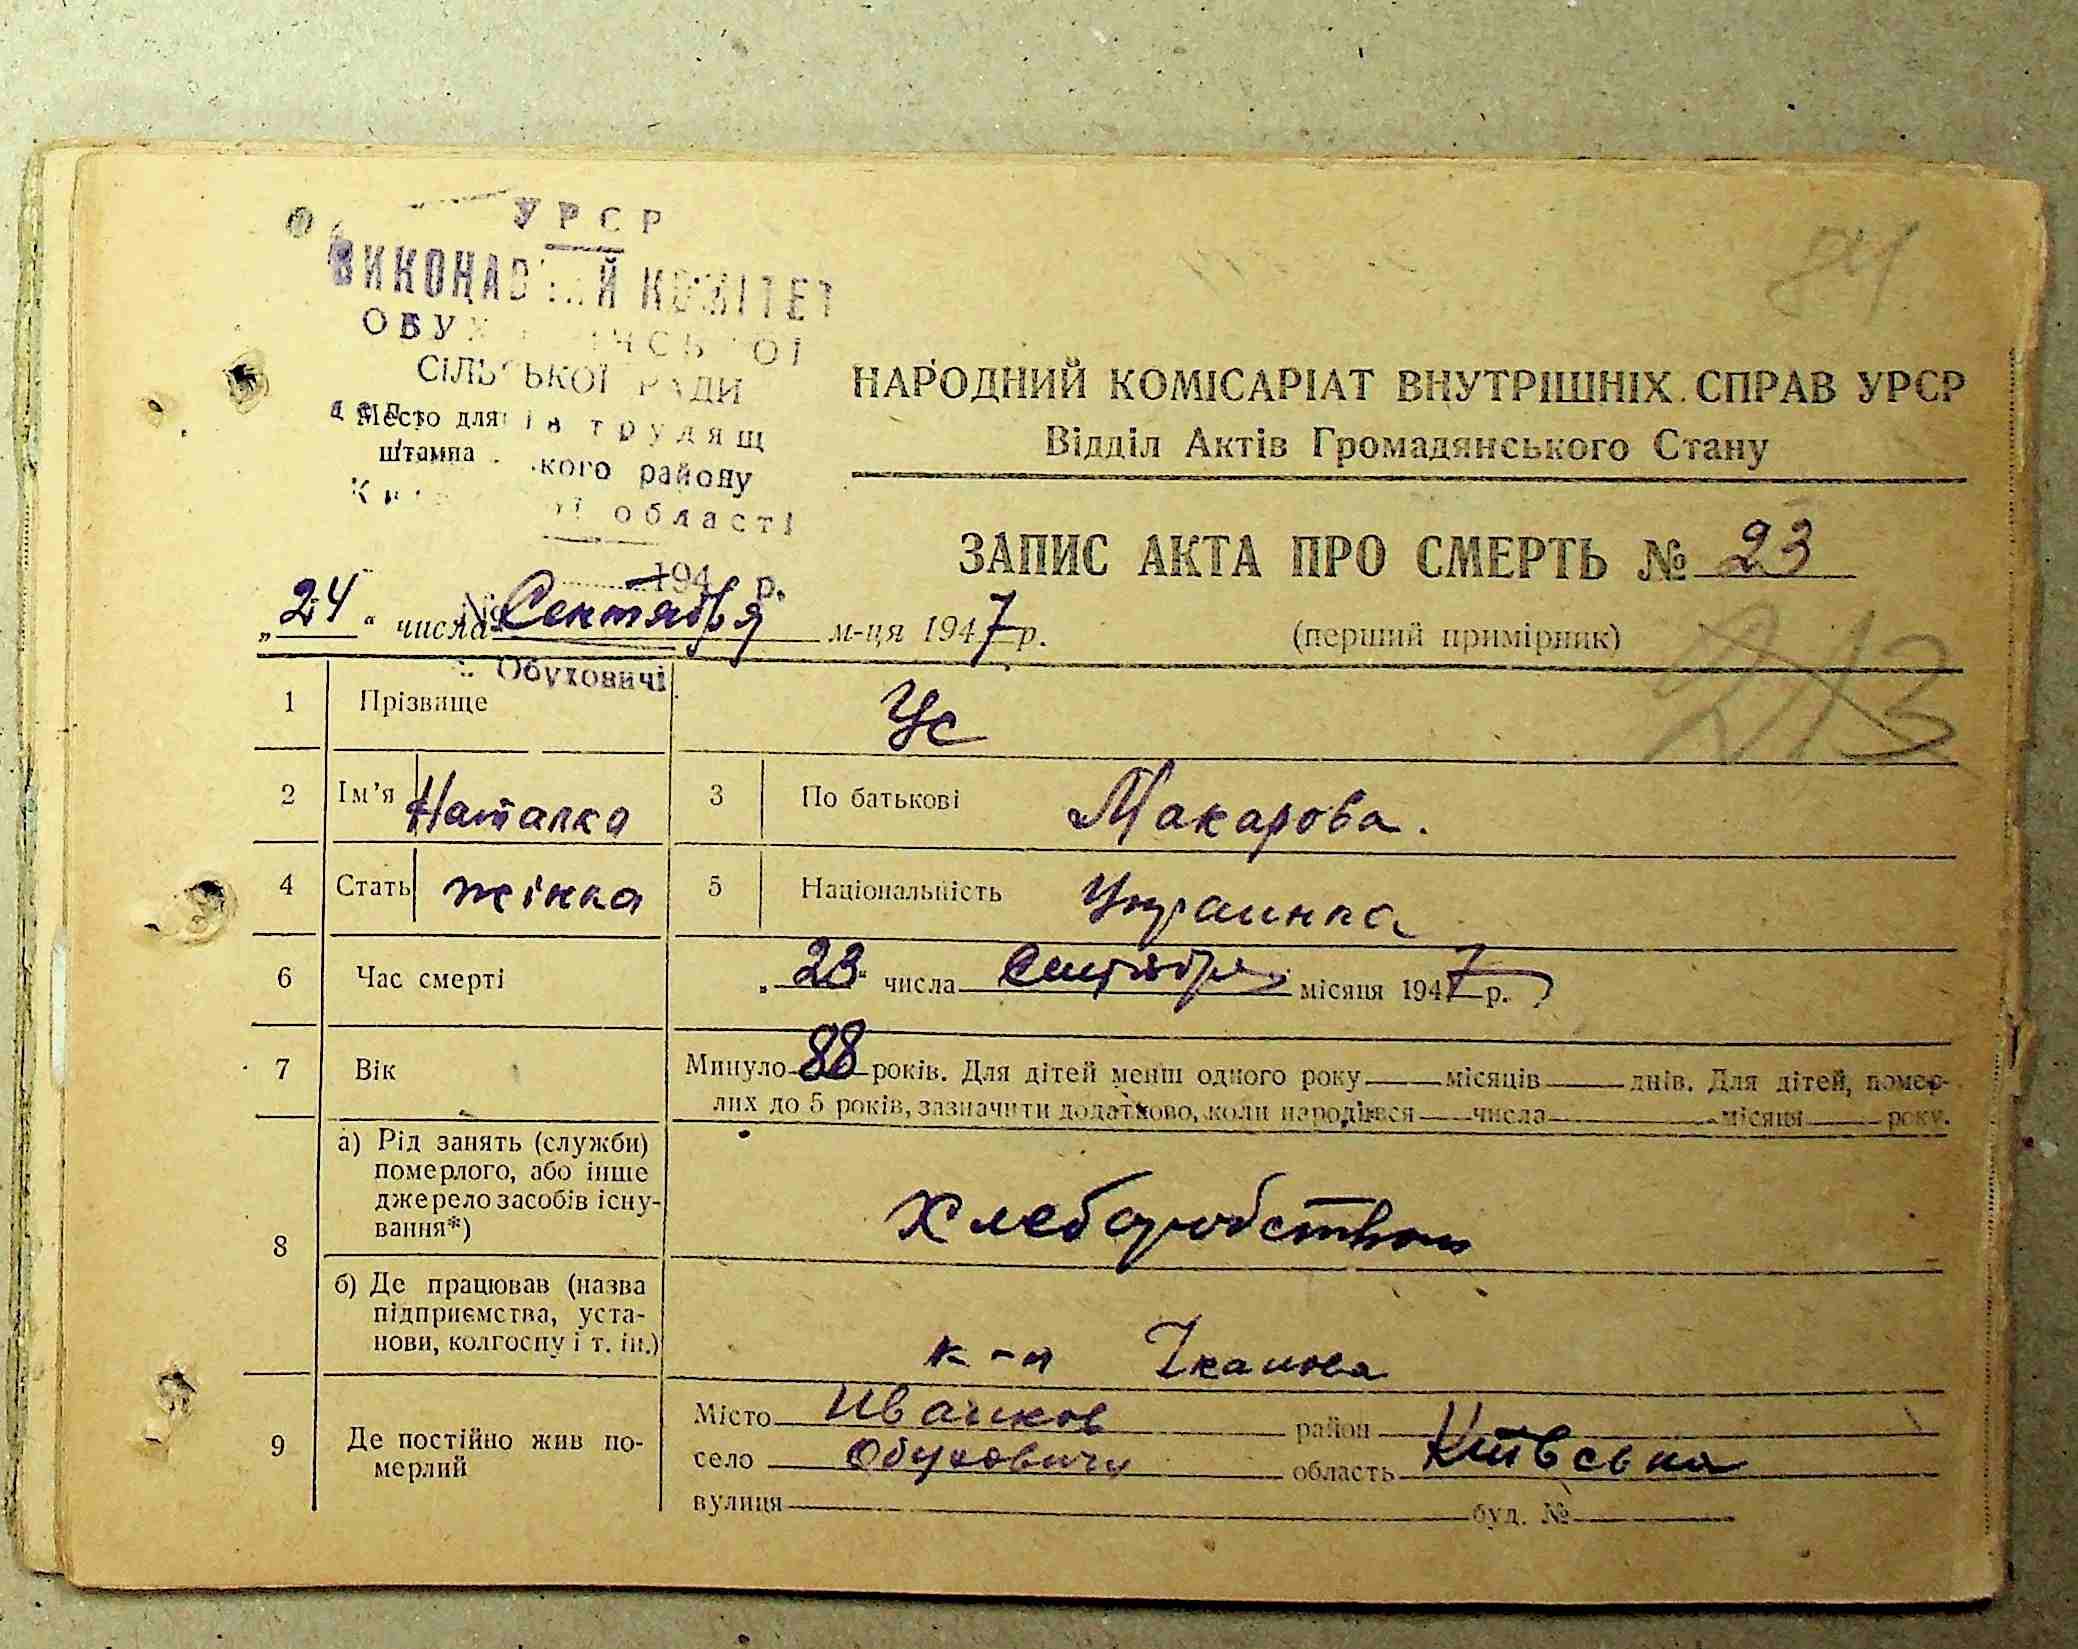 УРСР
ВИКОНАВЧИЙ КОМІТЕТ
ОБУХОВИЧСЬКОЇ
СІЛЬСЬКОЇ РАДИ
деп. трудящ
Место для
штампа
кого району
області
194 р.
№
с. Обуховичі
84
НАРОДНИЙ КОМІСАРІАТ ВНУТРІШНІХ СПРАВ УРСР
Відділ Актів Громадянського Стану
ЗАПИС АКТА ПРО СМЕРТЬ № 23
„24“ числа Сентября м-ця 1947 р. (перший примірник)
213
1 Прізвище Ус
2 Ім’я Наталка 3 По батькові Макарова.
4 Стать жінка 5 Національність Украинка
6 Час смерті „23“ числа Сентября місяця 1947 р.
7 Вік Минуло 88 років. Для дітей менш одного року місяців днів. Для дітей, помер-
лих до 5 років, зазначити додатково, коли народився числа місяця року.
8 а) Рід занять (служби)
померлого, або інше
джерело засобів існу-
вання*)
Хлеборобством
б) Де працював (назва
підприємства, уста-
нови, колгоспу і т. ін.)
к-п Чкалова
9 Де постійно жив по-
мерлий
Місто Иванков район
село Обуховичи область Київська
вулиця буд. №